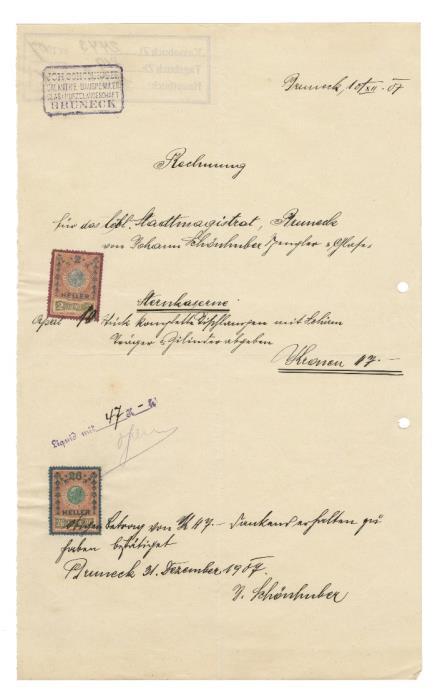 JOH. SCHÖNHUBER
GALANTERIE- BAUSPENGLER
GLAS- PORZELLANGESCHÄFT
BRUNECK
Bruneck, 10/XII. 07
Rechnung
für das löbl. Stadtmagistrat, Bruneck
von Johann Schönhuber Spengler & Glaser
2
HELLER
Sternkaserne
April 10 Stück komplette Tischlampen mit Schirm
Träger & Zilinder abgeben
Kronen 47.—
Liquid mit 47 K – h
20
HELLER
Obigen Betrag von K 47.— dankend erhalten zu
haben bestätiget
Bruneck 31. Dezember 1907.
J. Schönhuber